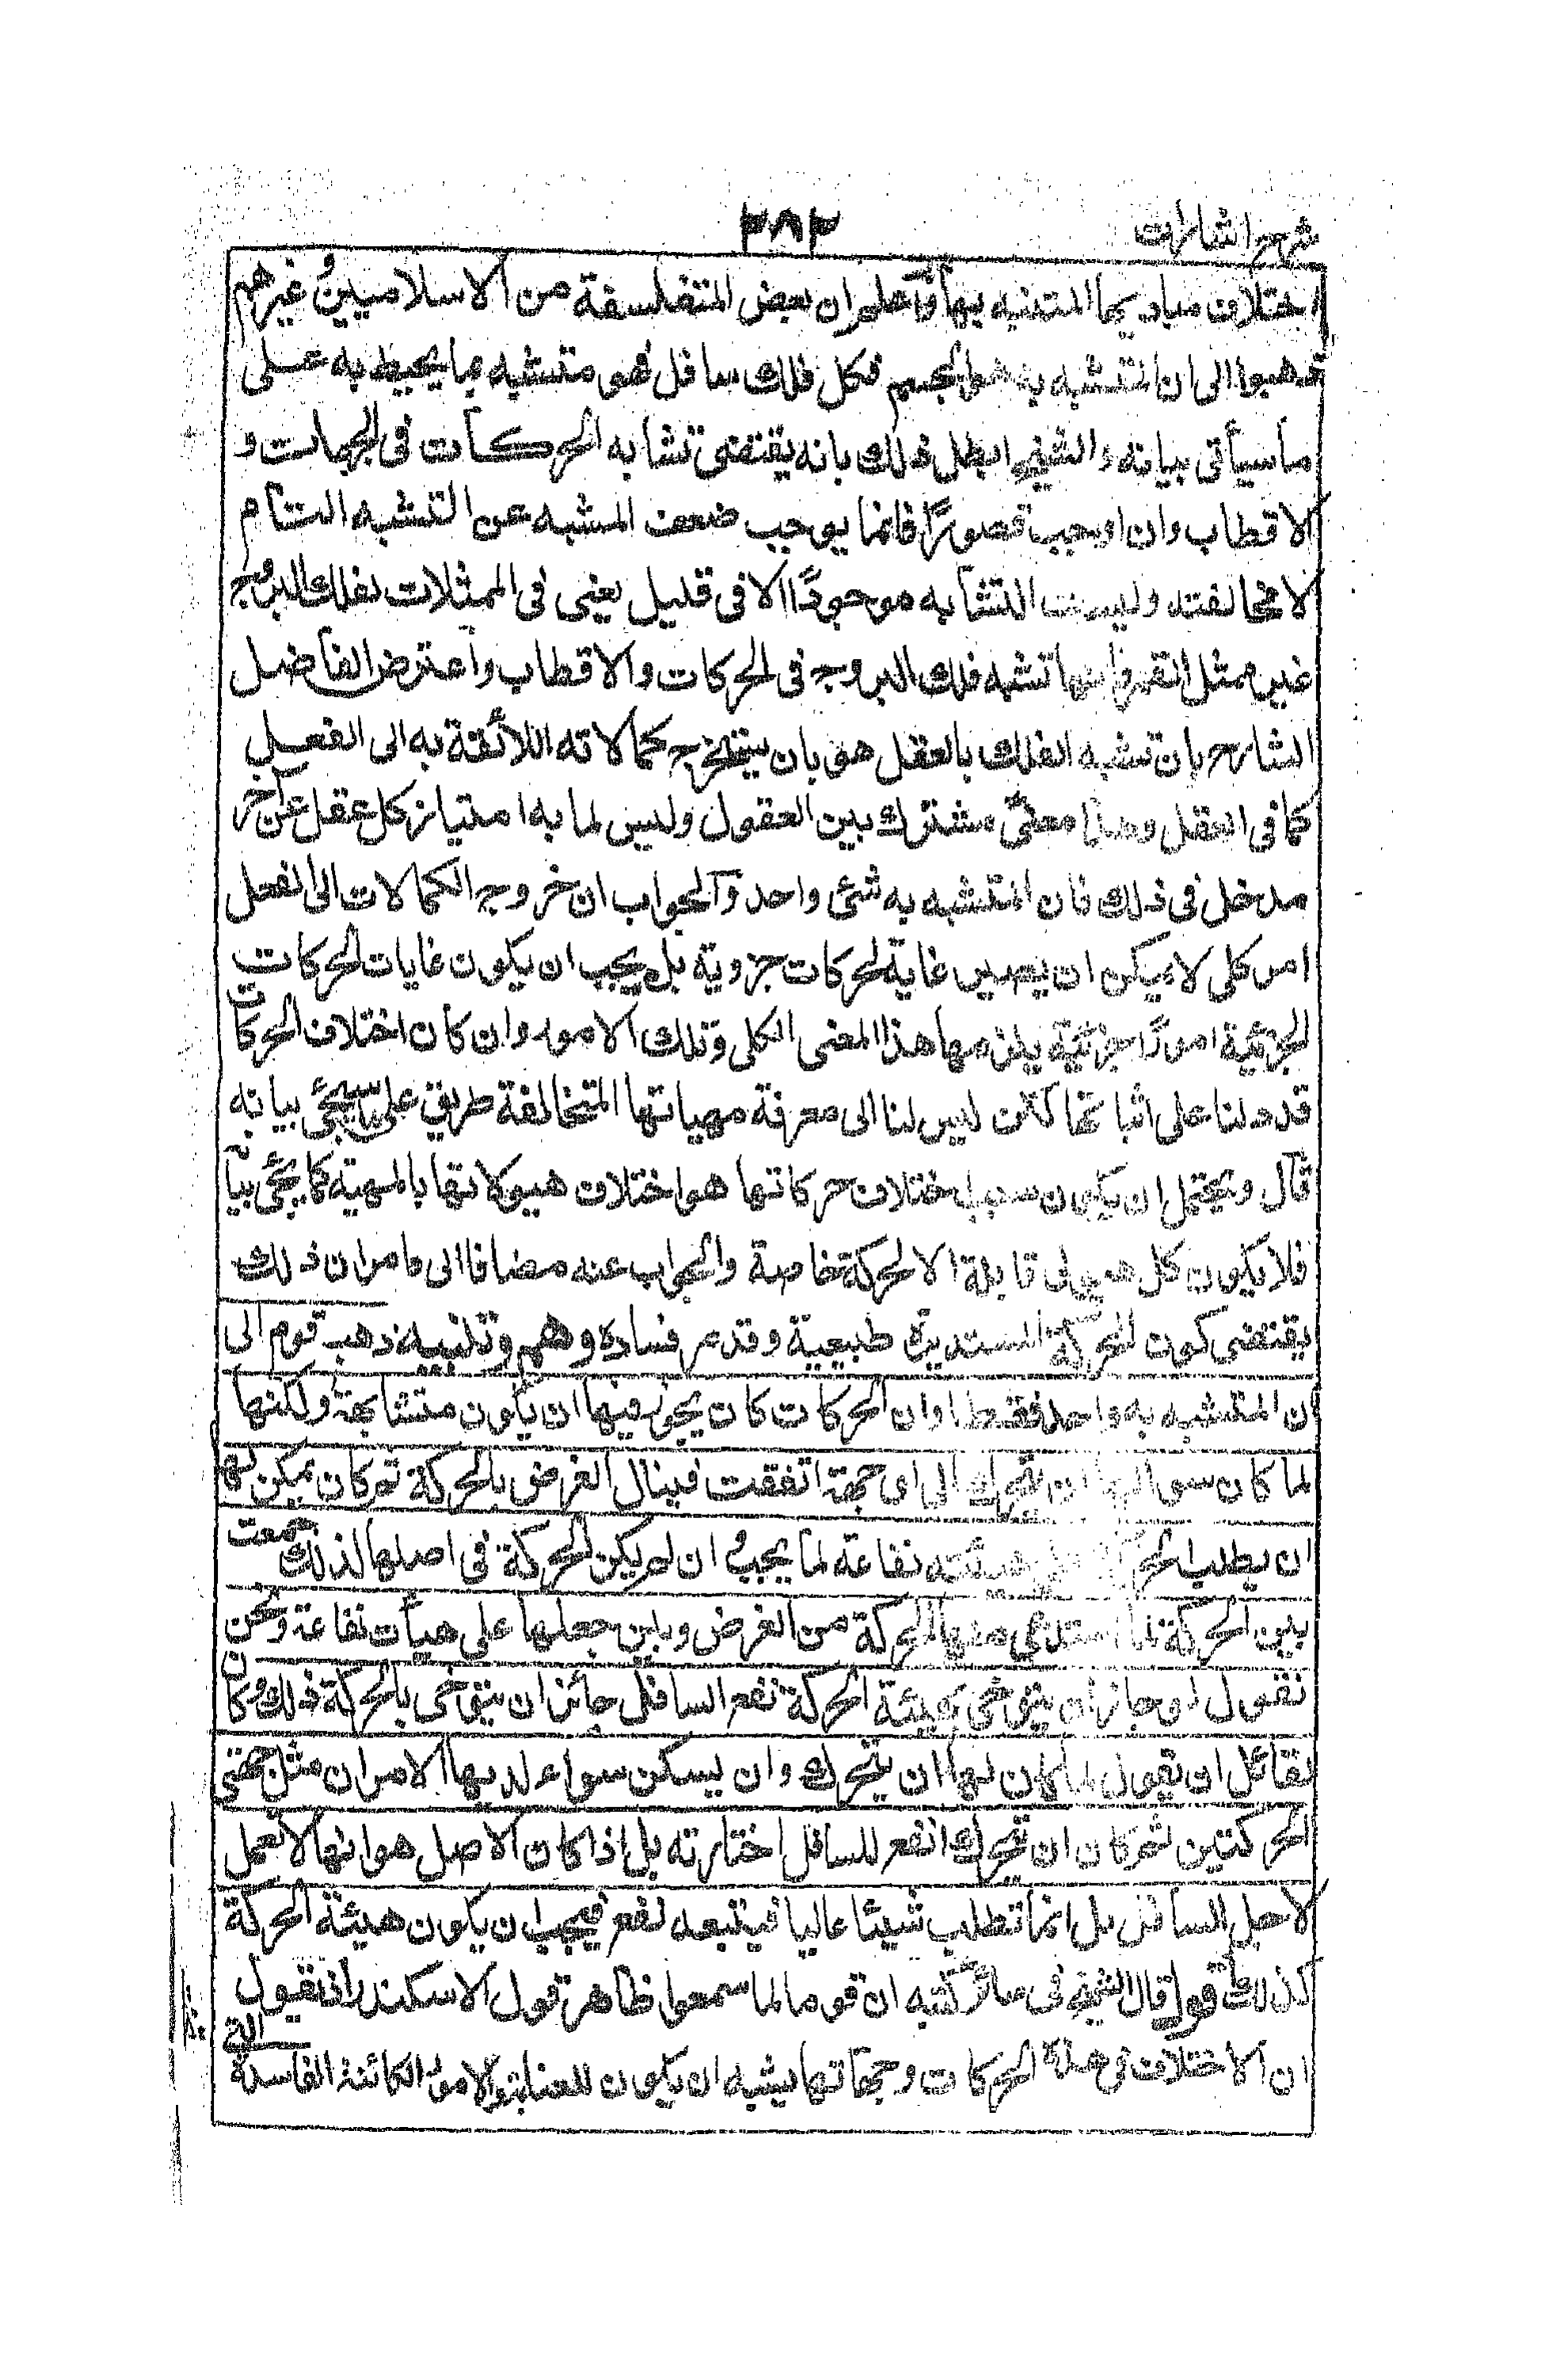 شرح اشارات
٣٨٣
اختلاف مباديها المتشبه بها واعلم ان بعض المتفلسفة من الاسلاميين وغيرهم
ذهبوا الى ان المتشبه به هو الجسم فكل فلك سافل فهو متشبه بما يحيط به على
ما سيأتى بيانه والشيخ ابطل ذلك بانه يقتضى تشابه الحركات فى الجهات و
الاقطاب وان اوجب قصورًا فانما يوجب ضعف المشبه عن التشبه التام
لا مخالفته وليست التشابه موجودًا الا فى قليل يعنى فى الممثلات لفلك البروج
غير ممثل القمر فانها تشبه فلك البروج فى الحركات والاقطاب واعترض الفاضل
الشارح بان تشبه الفلك بالعقل هو بان يستخرج كمالاته اللائقة به الى الفعل
كما فى العقل وهذا معنًى مشترك بين العقول وليس لما به امتياز كل عقل عن آخر
مدخل فى ذلك فان المتشبه به شئ واحد والجواب ان خروج الكمالات الى الفعل
امر كلى لا يمكن ان يصير غاية لحركات جزوية بل يجب ان يكون غايات الحركات
الجزئية امورًا جزئية يلزمها هذا المعنى الكلى وتلك الامور وان كان اختلاف الحركات
قد دلنا على اثباتها لكن ليس لنا الى معرفة مهياتها المتخالفة طريق على ما سيجئ بيانه
قال ويحتمل ان يكون سبب اختلاف حركاتها هو اختلاف هيولاتها بالمهية كما يجئ بيانه
فلا يكون كل هيولى قابلة الا لحركة خاصة والجواب عنه مضافا الى ما مر ان ذلك
يقتضى كون الحركة المستديرة طبيعية وقد مر فساده وهم وتنبيه ذهب قوم الى
ان المتشبه به واحد فقط وان الحركات كان يجوز فيها ان يكون متشابهة ولكنها
لما كان سواء لها ان يتحرك الى اى جهة اتفقت فينال الغرض بالحركة ثم كان يمكن لها
ان يطلب الحركة على هيئته نفاعة لما يجب و ان لم يكن الحركة فى اصلها لذلك جمعت
بين الحركة لما استدعى منها الحركة من الغرض وبين جعلها على هيأت نفاعة ونحن
نقول لو جاز ان يتوخى بهيئة الحركة نفع السافل جائز ان يتوخى بالحركة ذلك وكان
لقائل ان يقول لما كان لها ان يتحرك وان يسكن سواء لديها الامران مثل جهتى
الحركتين ثم كان ان تتحرك انفع للسافل اختارته بل اذا كان الاصل هو انها لا تعمل
لاجل السافل بل انما تطلب شيئا عاليا فيتبعه نفع فيجب ان يكون هيئة الحركة
كذلك اقول قال الشيخ فى سائر كتبه ان قوما لما سمعوا ظاهر قول الاسكندر اذ يقول
ان الاختلاف فى هذه الحركات وجهاتها يشبه ان يكون للعناية بالامور الكائنة الفاسدة التى